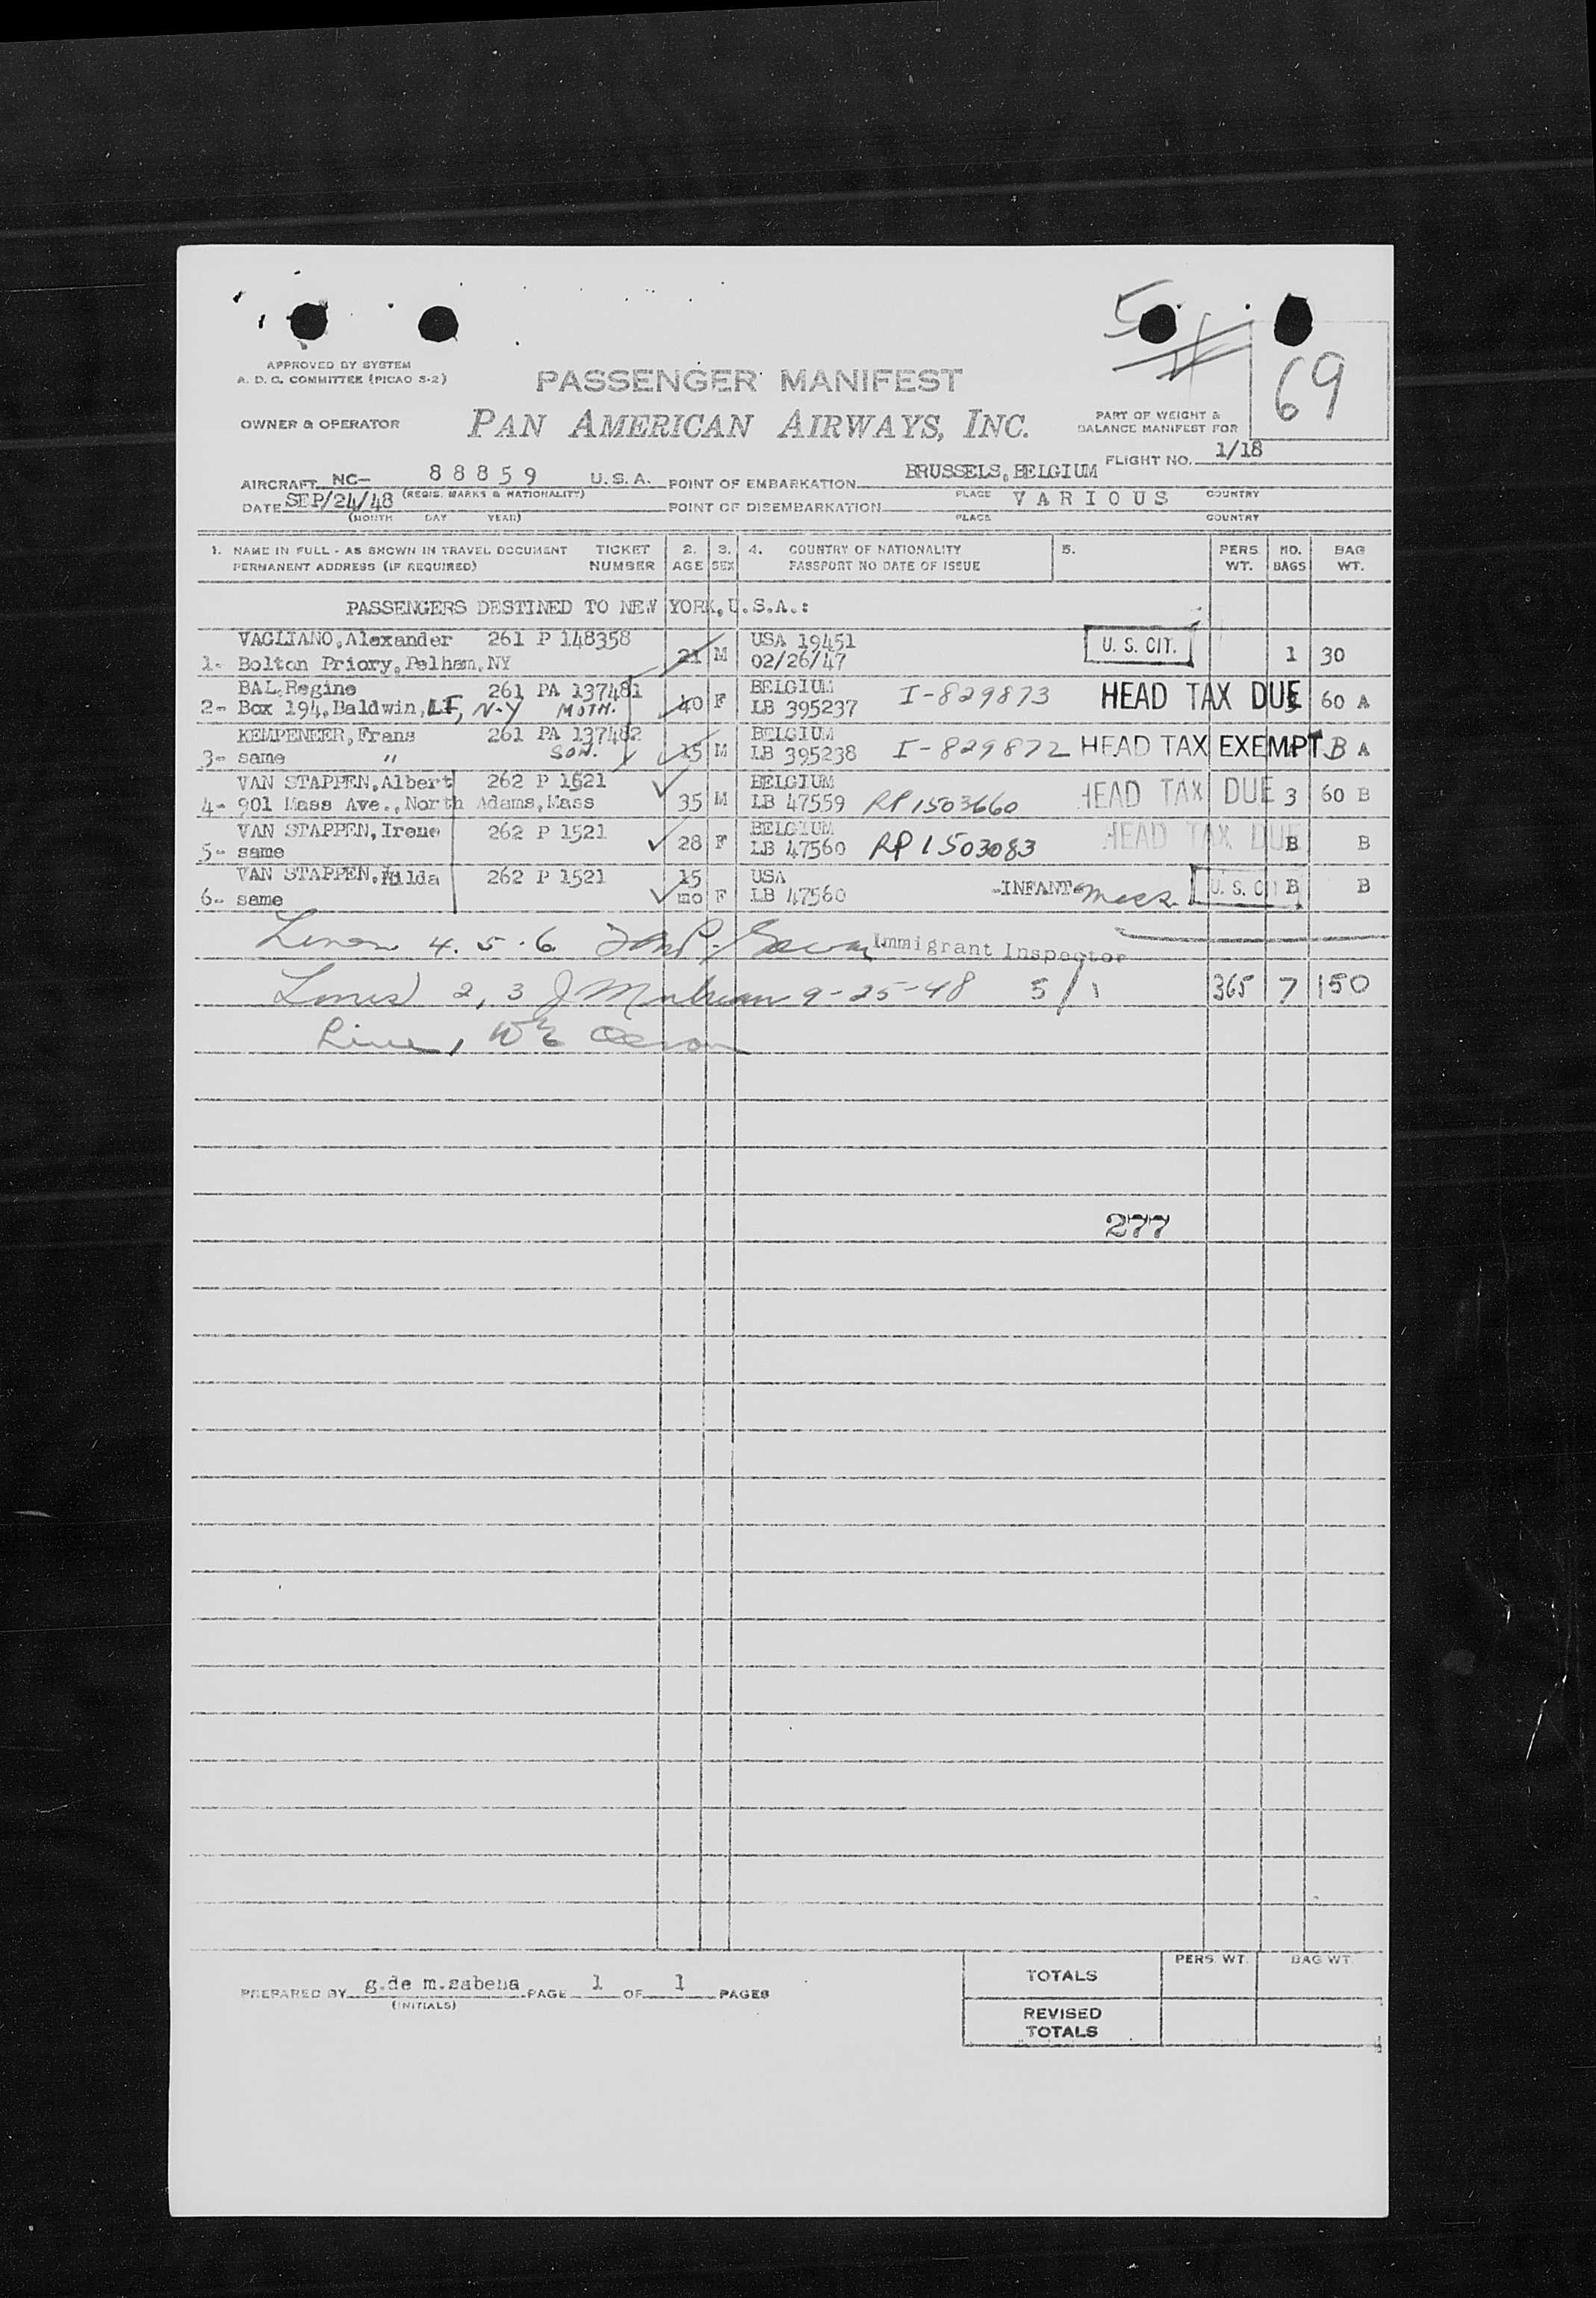 50
69
APPROVED BY SYSTEM
A. D. C. COMMITTEE (PICAO S-2)
PASSENGER MANIFEST
OWNER & OPERATOR
PAN AMERICAN AIRWAYS, INC.
PART OF WEIGHT &
BALANCE MANIFEST FOR
FLIGHT NO. 1/18
AIRCRAFT NC- 88859 U.S.A. POINT OF EMBARKATION BRUSSELS, BELGIUM
(REGIS. MARKS & NATIONALITY) PLACE COUNTRY
DATE SEP/24/48 POINT OF DISEMBARKATION VARIOUS
(MONTH DAY YEAR) PLACE COUNTRY
1. NAME IN FULL - AS SHOWN IN TRAVEL DOCUMENT TICKET 2. 3. 4. COUNTRY OF NATIONALITY 5. PERS. NO. BAG
PERMANENT ADDRESS (IF REQUIRED) NUMBER AGE SEX PASSPORT NO DATE OF ISSUE WT. BAGS WT.
PASSENGERS DESTINED TO NEW YORK, U.S.A.:
VAGLIANO, Alexander 261 P 148358 USA 19451 U. S. CIT.
1- Bolton Priory, Pelham, NY 21 M 02/26/47 1 30
BAL, Regine 261 PA 137481 BELGIUM I-829873 HEAD TAX DUE
2- Box 194, Baldwin, LI, N-Y MOTH. 40 F LB 395237 60 A
KEMPENEER, Frans 261 PA 137482 BELGIUM I-829872 HEAD TAX EXEMPT
3- same " SON. 15 M LB 395238 B A
VAN STAPPEN, Albert 262 P 1521 BELGIUM HEAD TAX DUE
4- 901 Mass Ave., North Adams, Mass 35 M LB 47559 RP 1503660 3 60 B
VAN STAPPEN, Irene 262 P 1521 BELGIUM HEAD TAX DUE
5- same 28 F LB 47560 RP 1503083 B B
VAN STAPPEN, Hilda 262 P 1521 15 USA
6- same mo F LB 47560 -INFANT- Mass. U. S. CI B B
4. 5. 6 Immigrant Inspector
2, 3 9-25-48 5/1 365 7 150
Line 1
277
PREPARED BY g.de m.sabena PAGE 1 OF 1 PAGES
(INITIALS)
PERS. WT. BAG WT.
TOTALS
REVISED
TOTALS